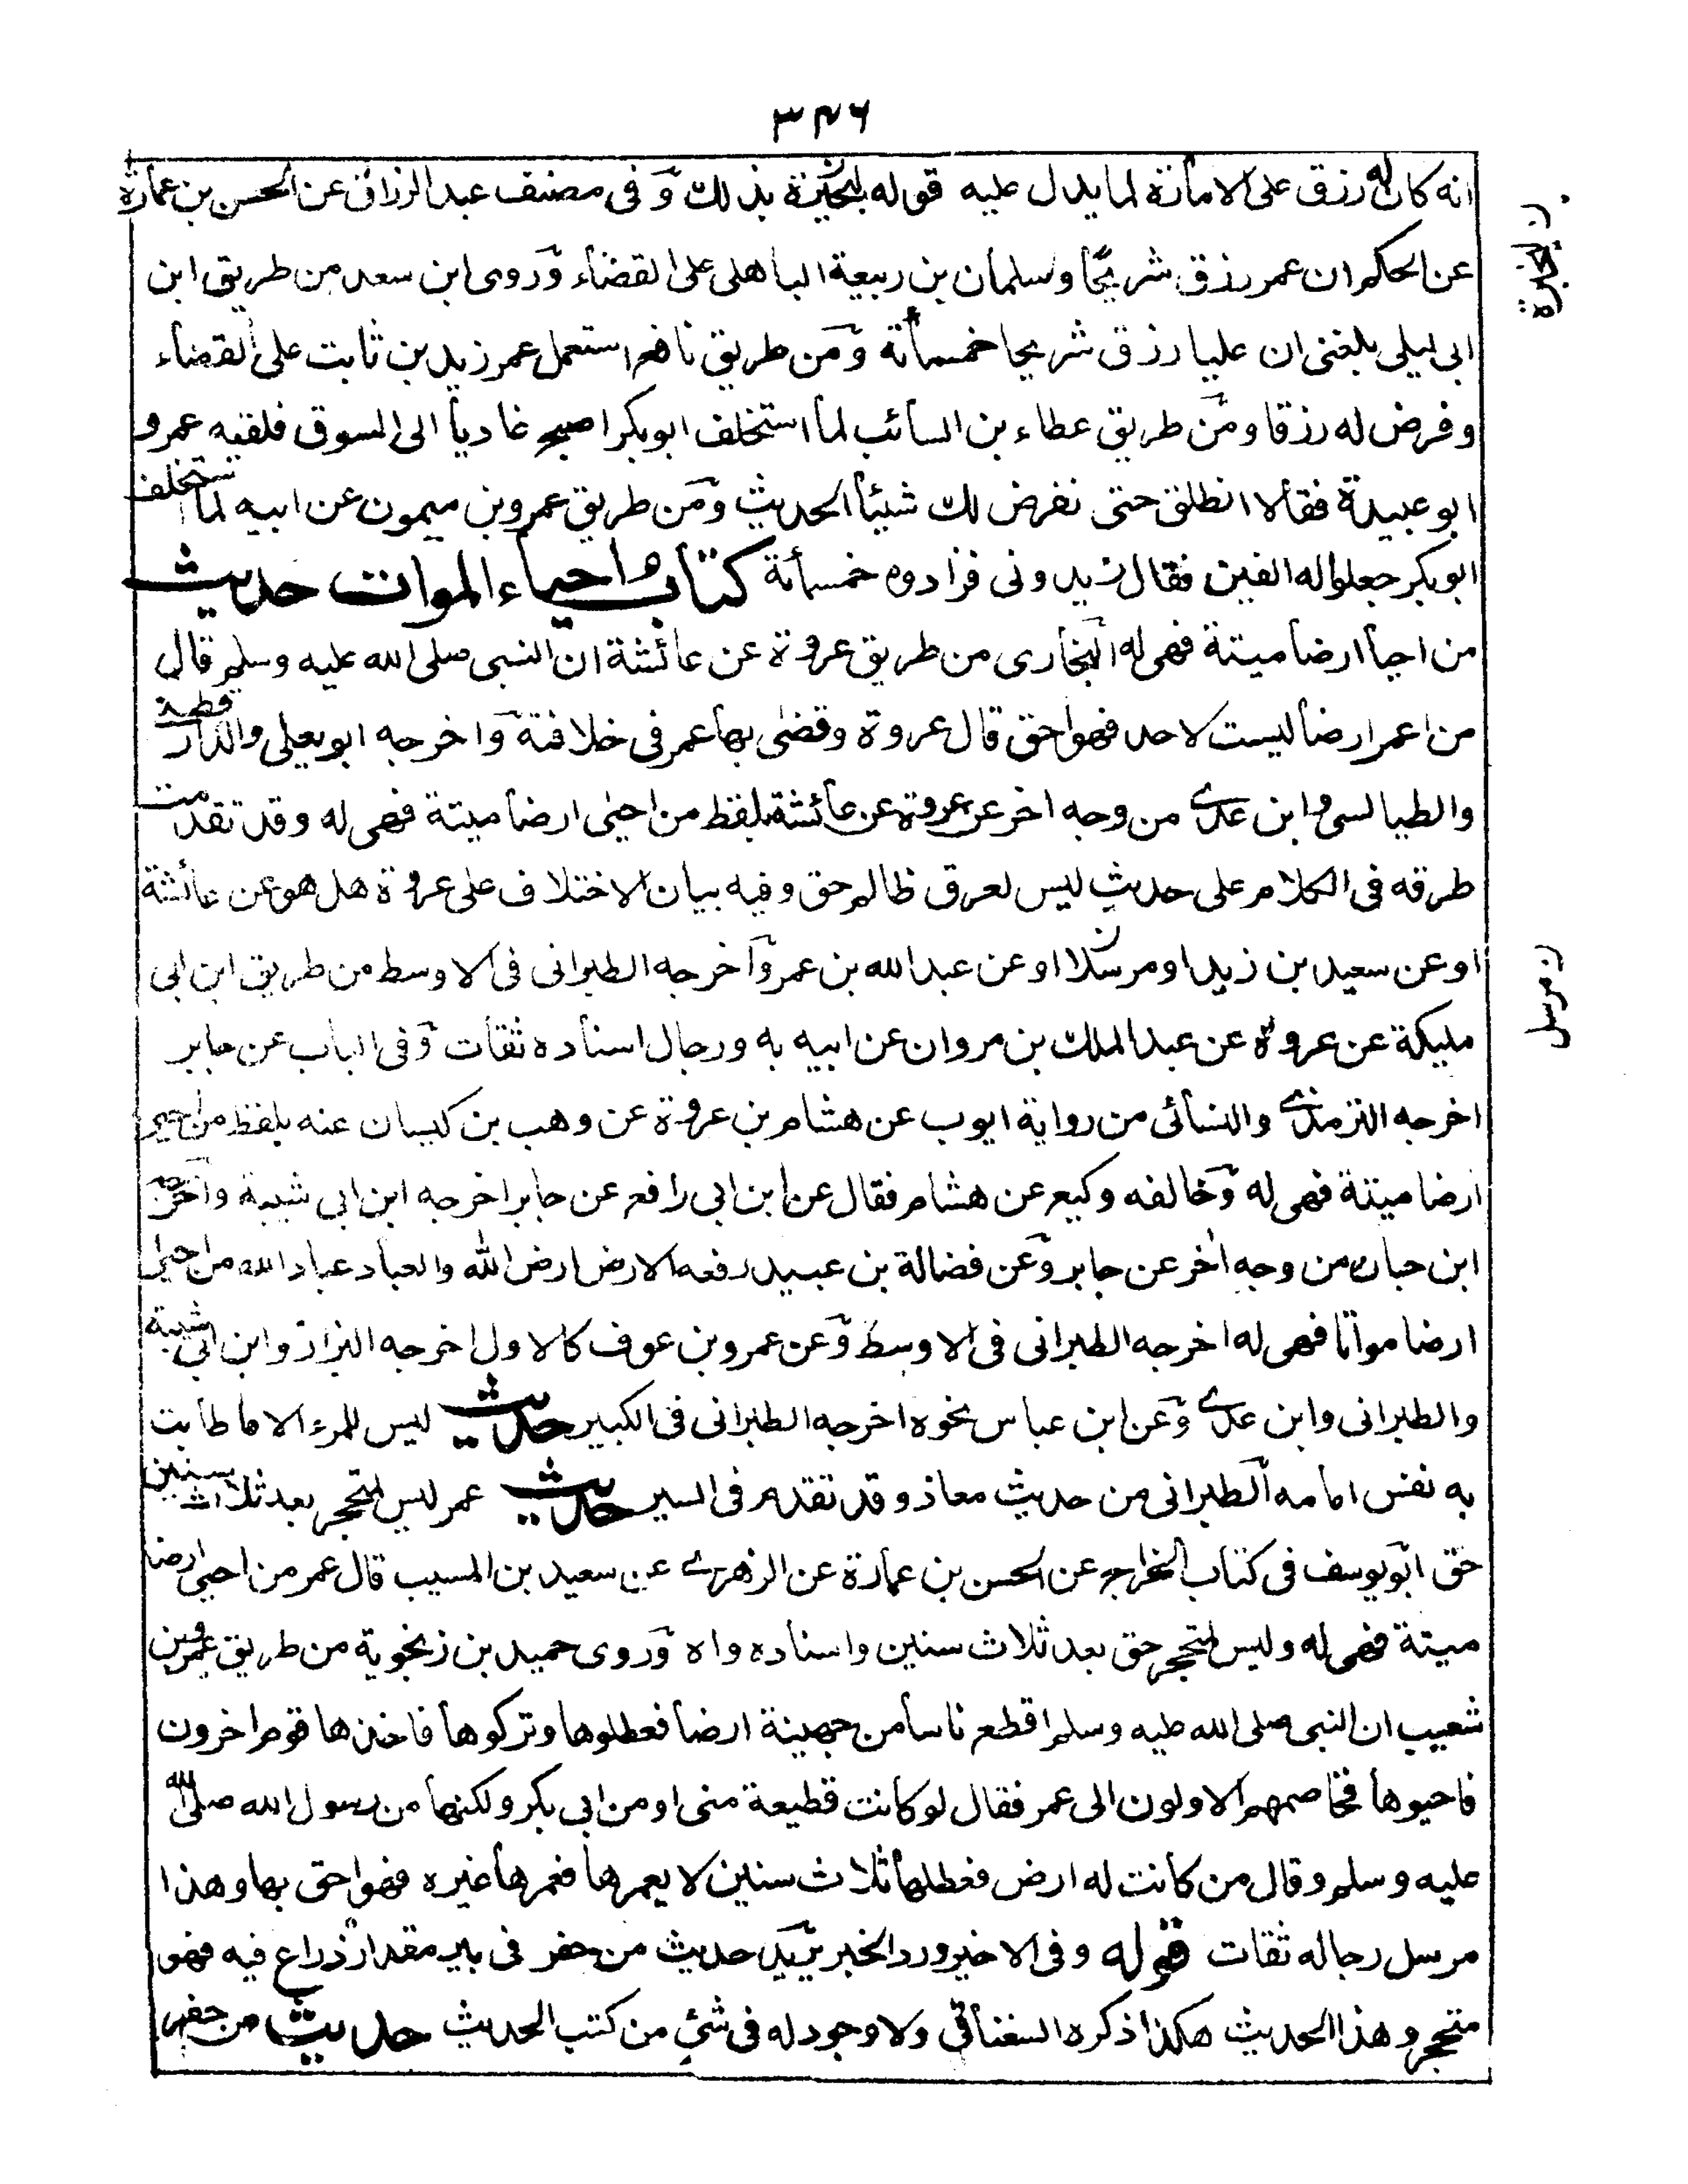 ۳۴۶
انه كان له رزق على الامارة لما يدل عليه قوله بذلك وفى مصنف عبد الرزاق عن الحسن بن عمارة
عن الحكم ان عمر رزق شريحا وسلمان بن ربيعة الباهلى على القضاء وروى ابن سعد من طريق ابن
ابى ليلى بلغنى ان عليا رزق شريحا خمسمائة ومن طريق نافع استعمل عمر زيد بن ثابت على القضاء
وفرض له رزقا ومن طريق عطاء بن السائب لما استخلف ابو بكر اصبح غاديا الى السوق فلقيه عمر و
ابو عبيدة فقالا انطلق حتى نفرض لك شيئا الحديث ومن طريق عمرو بن ميمون عن ابيه لما استخلف
ابو بكر جعلوا له الفين فقال زيدونى فزادوه خمسمائة كتاب احياء الموات حديث
من احيا ارضا ميتة فهى له البخارى من طريق عروة عن عائشة ان النبى صلى الله عليه وسلم قال
من اعمر ارضا ليست لاحد فهو احق قال عروة وقضى بها عمر فى خلافته واخرجه ابو يعلى والدارقطنى
والطيالسى وابن عدى من وجه اخر عن عروة عن عائشة بلفظ من احيى ارضا ميتة فهى له وقد تقدمت
طرقه فى الكلام على حديث ليس لعرق ظالم حق وفيه بيان الاختلاف على عروة هل هو عن عائشة
او عن سعيد بن زيد او مرسلا او عن عبد الله بن عمرو اخرجه الطبرانى فى الاوسط من طريق ابن ابى
مليكة عن عروة عن عبد الملك بن مروان عن ابيه به ورجال اسناده ثقات وفى الباب عن جابر
اخرجه الترمذى والنسائى من رواية ايوب عن هشام بن عروة عن وهب بن كيسان عنه بلفظ من احيى
ارضا ميتة فهى له وخالفه وكيع عن هشام فقال عن ابن ابى رافع عن جابر اخرجه ابن ابى شيبة واخرجه
ابن حبان من وجه اخر عن جابر وعن فضالة بن عبيد رفعه الارض ارض الله والعباد عباد الله من احيى
ارضا مواتا فهى له اخرجه الطبرانى فى الاوسط وعن عمرو بن عوف كالاول اخرجه البزار وابن ابى شيبة
والطبرانى وابن عدى وعن ابن عباس نحوه اخرجه الطبرانى فى الكبير حديث ليس للمرء الا ما طابت
به نفس امامه الطبرانى من حديث معاذ وقد تقدم فى السير حديث عمر ليس لمتحجر بعد ثلاث سنين
حق ابو يوسف فى كتاب الخراج عن الحسن بن عمارة عن الزهرى عن سعيد بن المسيب قال عمر من احيى ارضا
ميتة فهى له وليس لمتحجر حق بعد ثلاث سنين واسناده واه وروى حميد بن زنجوية من طريق عمرو بن
شعيب ان النبى صلى الله عليه وسلم اقطع ناسا من جهينة ارضا فعطلوها وتركوها فاخذها قوم اخرون
فاحيوها فخاصمهم الاولون الى عمر فقال لو كانت قطيعة منى او من ابى بكر ولكنها من رسول الله صلى الله
عليه وسلم وقال من كانت له ارض فعطلها ثلاث سنين لا يعمرها فعمرها غيره فهو احق بها وهذا
مرسل رجاله ثقات قوله وفى الاخير ورد الخبر يريد حديث من حفر فى بير مقدار ذراع فيه فهو
متحجر وهذا الحديث هكذا ذكره السغناقى ولا وجود له فى شئ من كتب الحديث حديث من حفر
ن مرسل